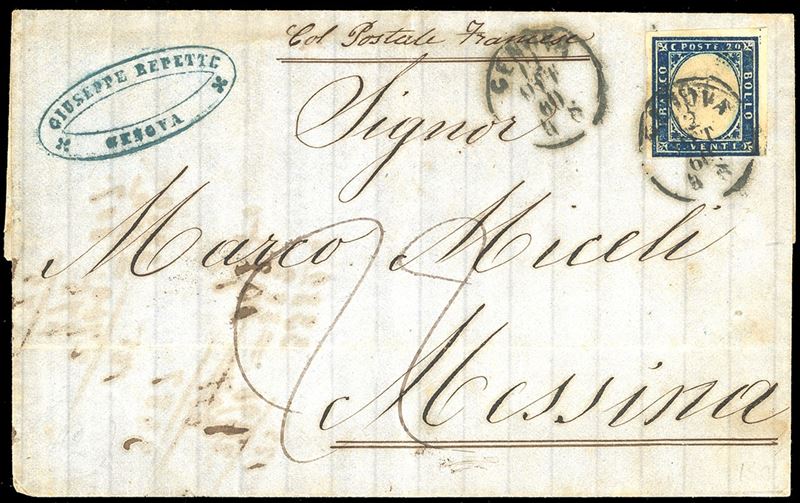 Col Postale Francese
GIUSEPPE REPETTO
GENOVA
GENOVA
OTT
60
C. POSTE. 20
FRANCO
BOLLO
C. VENTI
GENOVA
60
Signor
Marco Miceli
Messina